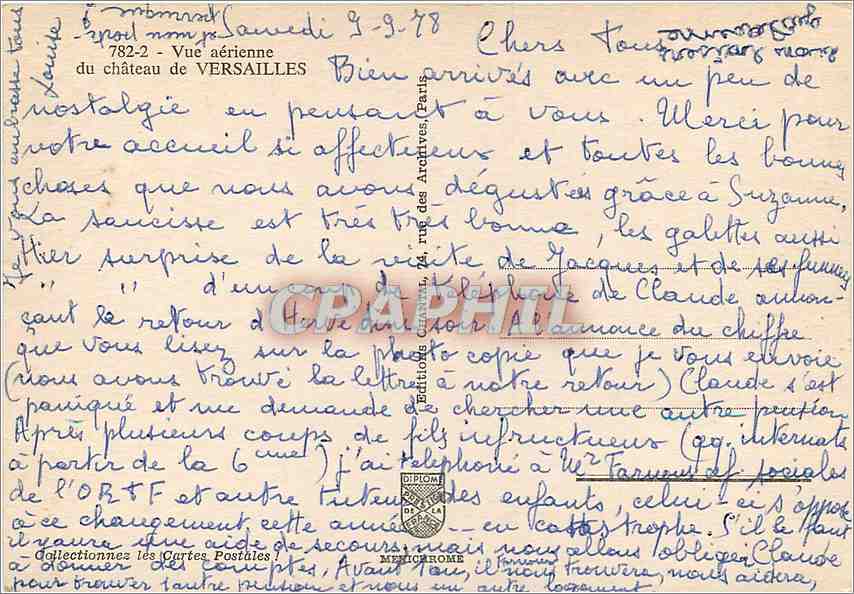 Samedi 9-9-78
Chers Tous
782-2 - Vue aérienne
du château de VERSAILLES
Bien arrivés avec un peu de
nostalgie en pensant à vous. Merci pour
votre accueil si affectueux et toutes les bonnes
choses que nous avons dégustées grâce à Suzanne.
La saucisse est très très bonne, les galettes aussi
Hier surprise de la visite de Jacques et de ses
" " d'un coup de téléphone de Claude annon-
çant le retour d'Hervé dim. soir. A l'annonce du chiffre
que vous lisez sur la photocopie que je vous envoie
(nous avons trouvé la lettre à notre retour) Claude s'est
paniqué et me demande de chercher une autre pension
Après plusieurs coups de fils infructueux (qq. internats
à partir de la 6ème) j'ai téléphoné à Mr af. sociales
de l'ORTF et autre tuteur des enfants, celui-ci s'oppose
à ce changement cette année -- en catastrophe. S'il le faut
il y aura une aide de secours mais nous allons obliger Claude
à donner des comptes, Avant tou, il nous trouvera, nous aidera,
pour trouver 1 autre pension et nous un autre logement
Je vous embrasse tous
Louise
Editions CHANTAL, 74, rue des Archives, Paris
CPAPHIL
DIPLOME
DE LA
Collectionnez les Cartes Postales !
MEXICHROME